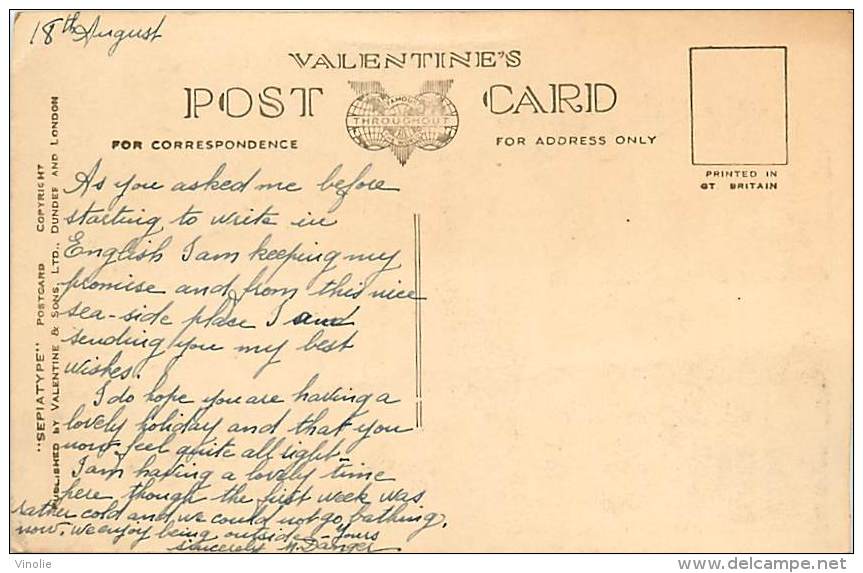 18th August
VALENTINE'S
POST CARD
FAMOUS
THROUGHOUT
FOR CORRESPONDENCE
FOR ADDRESS ONLY
PRINTED IN
GT. BRITAIN
"SEPIATYPE" POSTCARD COPYRIGHT
PUBLISHED BY VALENTINE & SONS, LTD., DUNDEE AND LONDON
As you asked me before
starting to write in
English I am keeping my
promise and from this nice
sea-side place I and
sending you my best
wishes.
I do hope you are having a
lovely holiday and that you
now feel quite all right.
I am having a lovely time
here though the first week was
rather cold and we could not go bathing,
now, we enjoy being outside. Yours
sincerely M. Danger
Vinolie
delcampe.net